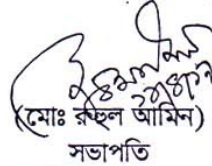 (মোঃ রুহুল আমিন)
সভাপতি